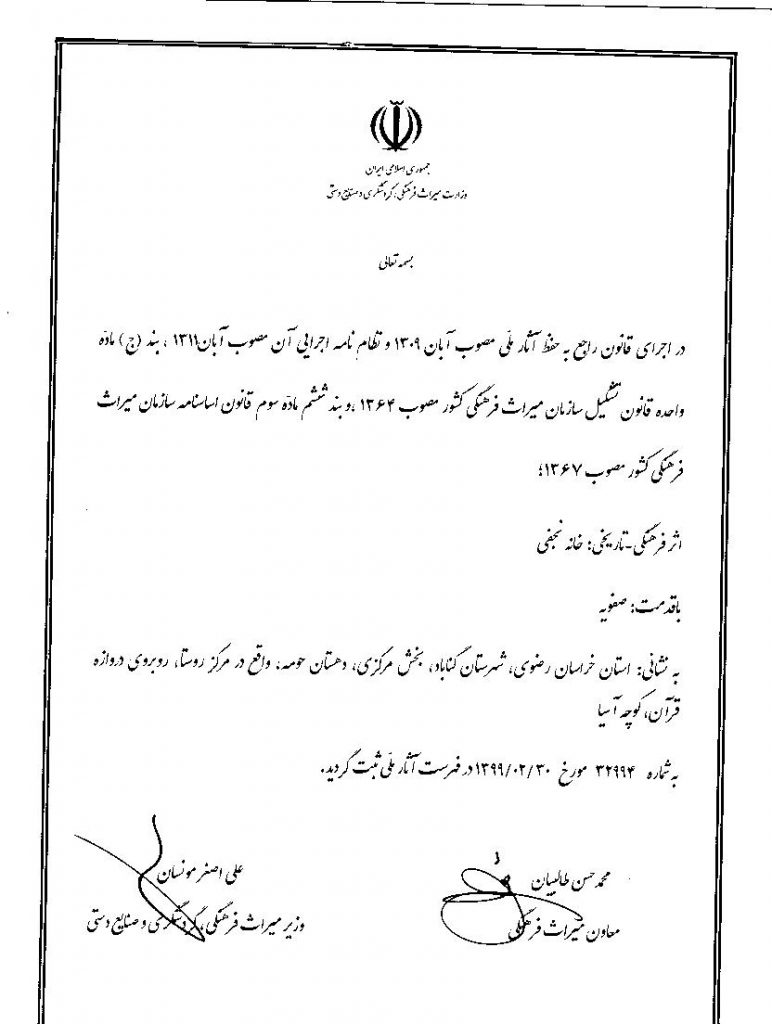 جمهوری اسلامی ایران
وزارت میراث فرهنگی، گردشگری و صنایع دستی
بسمه تعالی
در اجرای قانون راجع به حفظ آثار ملّی مصوب آبان ۱۳۰۹ و نظام نامه اجرایی آن مصوب آبان۱۳۱۱ ، بند (ج) مادّه
واحده قانون تشکیل سازمان میراث فرهنگی کشور مصوب ۱۳۶۴ ،و بند ششم مادّه سوم قانون اساسنامه سازمان میراث
فرهنگی کشور مصوب ۱۳۶۷؛
اثر فرهنگی-تاریخی: خانه نجفی
باقدمت: صفویه
به نشانی: استان خراسان رضوی، شهرستان گناباد، بخش مرکزی، دهستان حومه، واقع در مرکز روستا، روبروی دروازه
قرآن، کوچه آسیا
به شماره ۳۲۹۹۴ مورخ ۱۳۹۹/۰۲/۳۰ در فهرست آثار ملّی ثبت گردید.
محمدحسن طالبیان
معاون میراث فرهنگی
علی اصغر مونسان
وزیر میراث فرهنگی، گردشگری و صنایع دستی